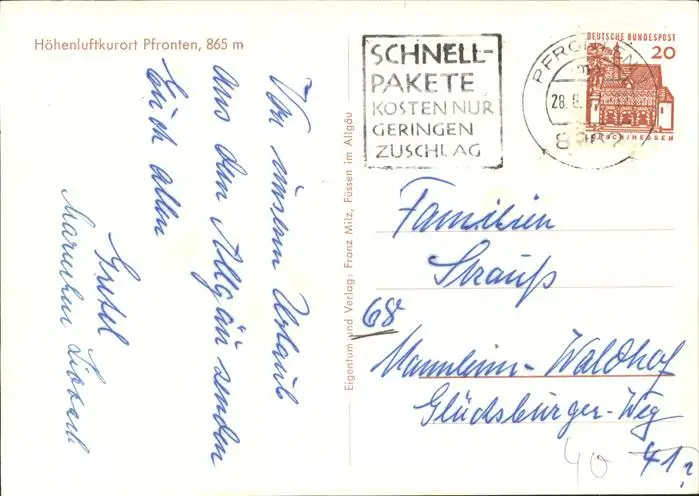 Höhenluftkurort Pfronten, 865 m
Von unserem Urlaub
aus dem Allgäu senden
Euch allen
Gretel
Eigentum und Verlag: Franz Milz, Füssen im Allgäu
SCHNELL-
PAKETE
KOSTEN NUR
GERINGEN
ZUSCHLAG
PFRONTEN
28.8.
DEUTSCHE BUNDESPOST
20
LORSCH/HESSEN
Familien
Strauß
68
Mannheim-Waldhof
Glücksburger-Weg
40 41?